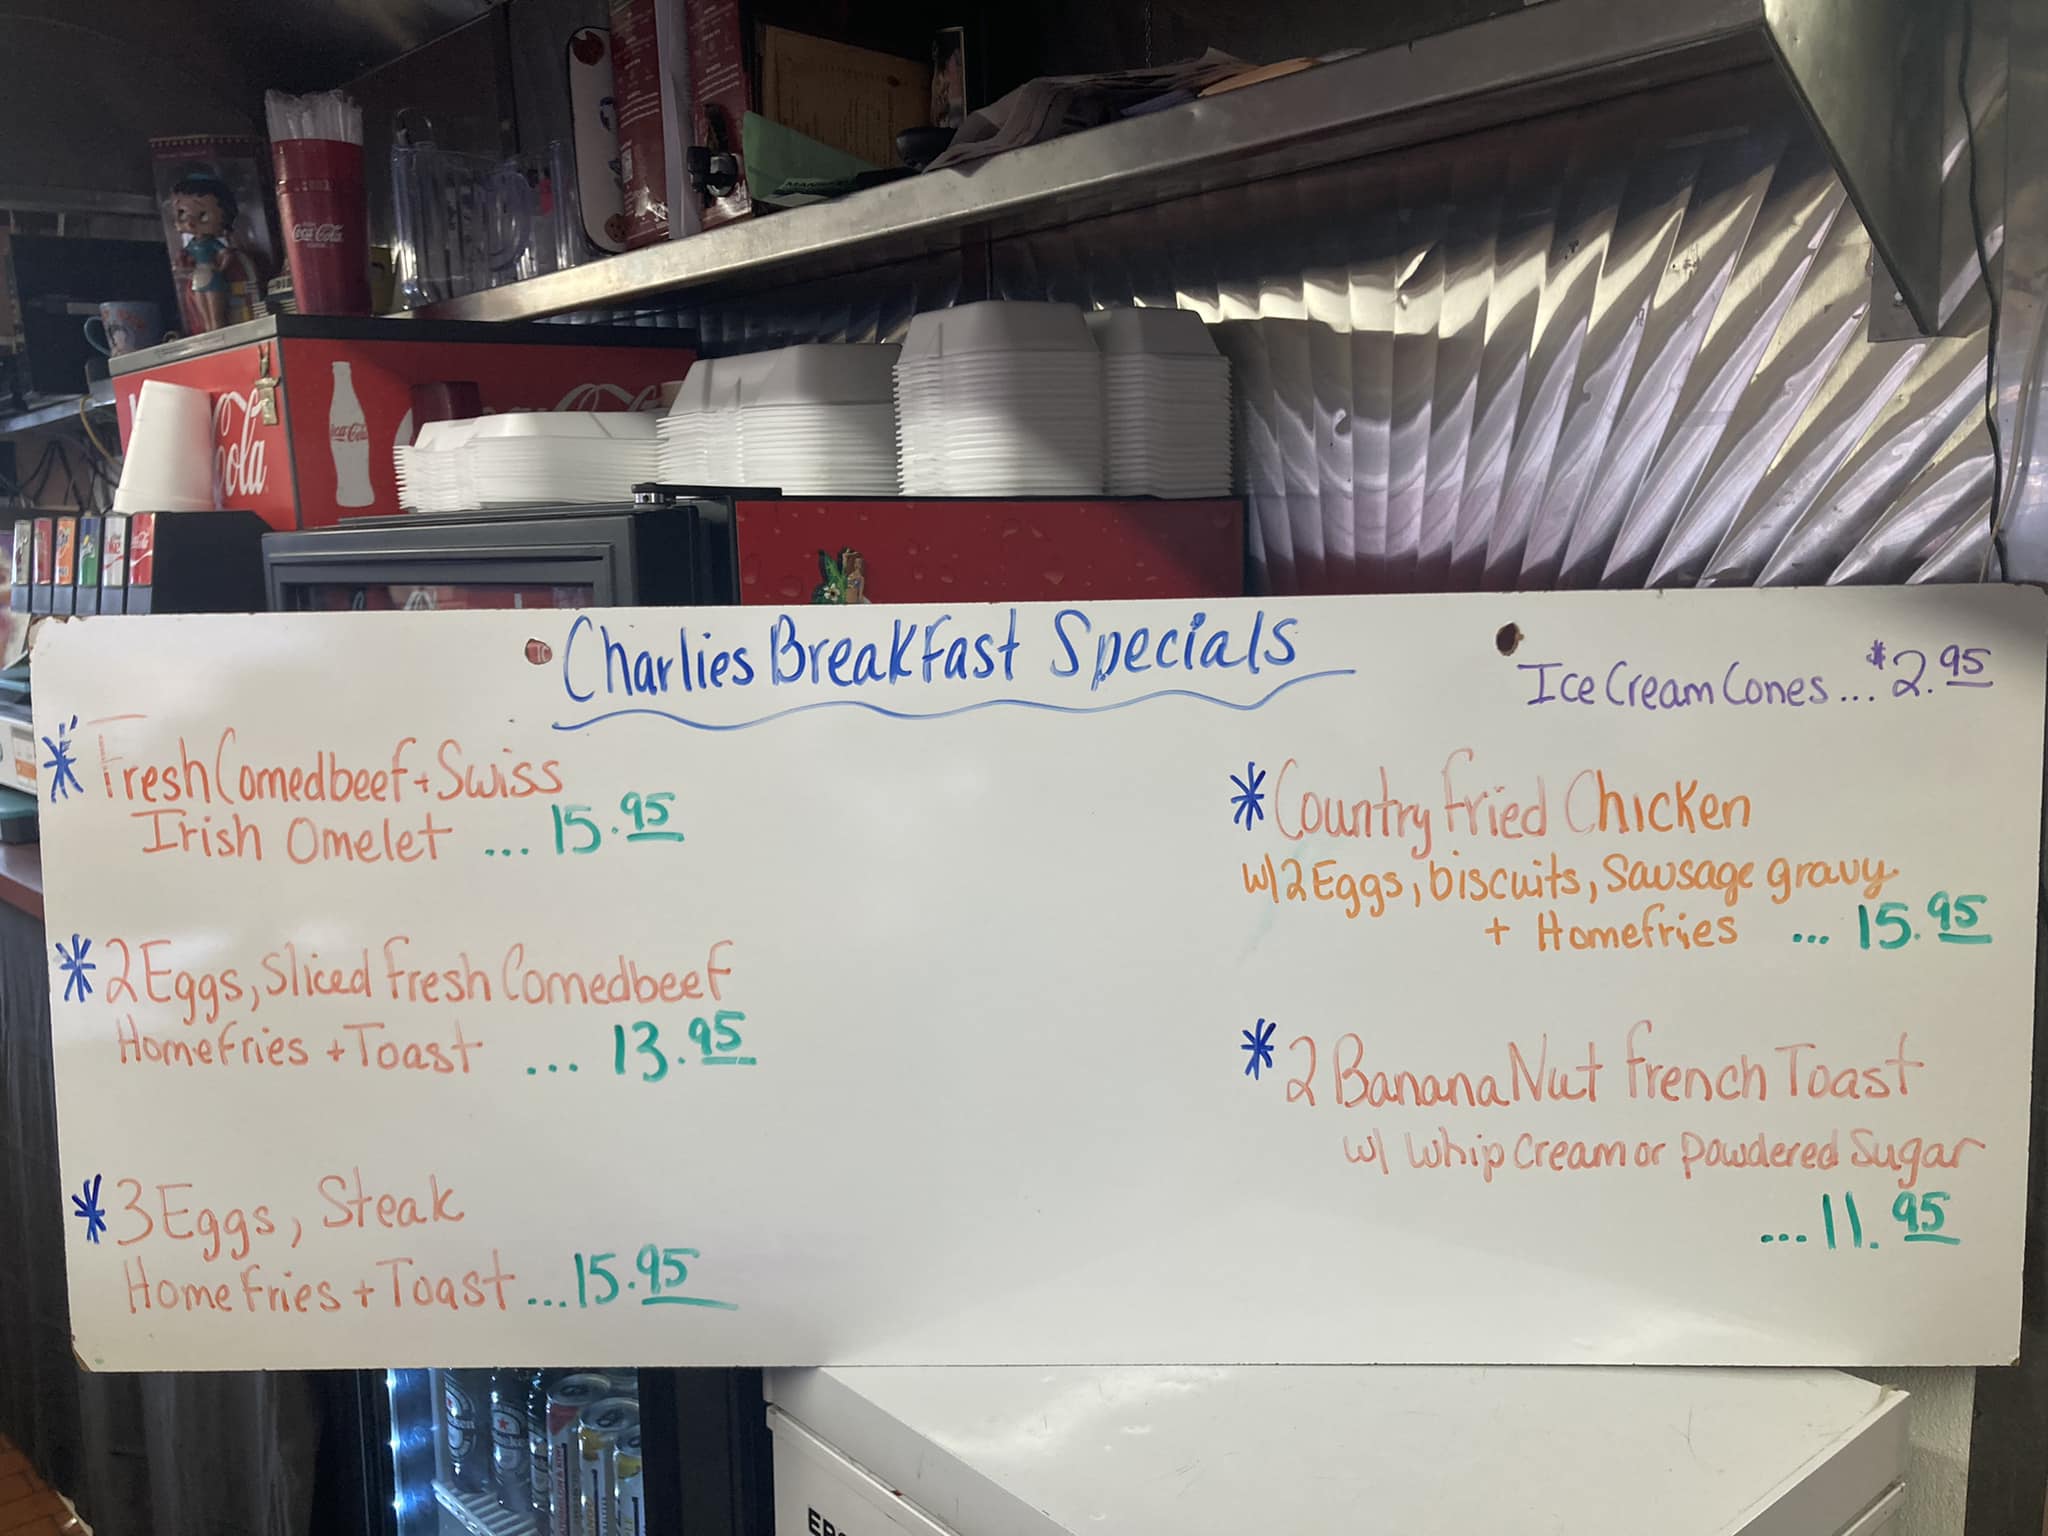 Coca-Cola
Coca-Cola
Cola
Charlies Breakfast Specials
Ice Cream Cones ... $2.95
* Fresh Cornedbeef + Swiss
Irish Omelet ... 15.95
* 2 Eggs, Sliced Fresh Cornedbeef
Homefries + Toast ... 13.95
* 3 Eggs, Steak
Homefries + Toast ... 15.95
* Country Fried Chicken
w/ 2 Eggs, biscuits, Sausage gravy
+ Homefries ... 15.95
* 2 Banana Nut French Toast
w/ Whip Cream or Powdered Sugar
... 11.95